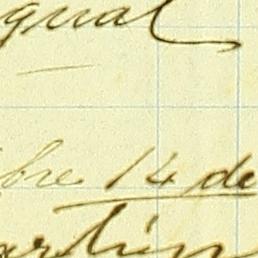 gual
bre 14 de
artin